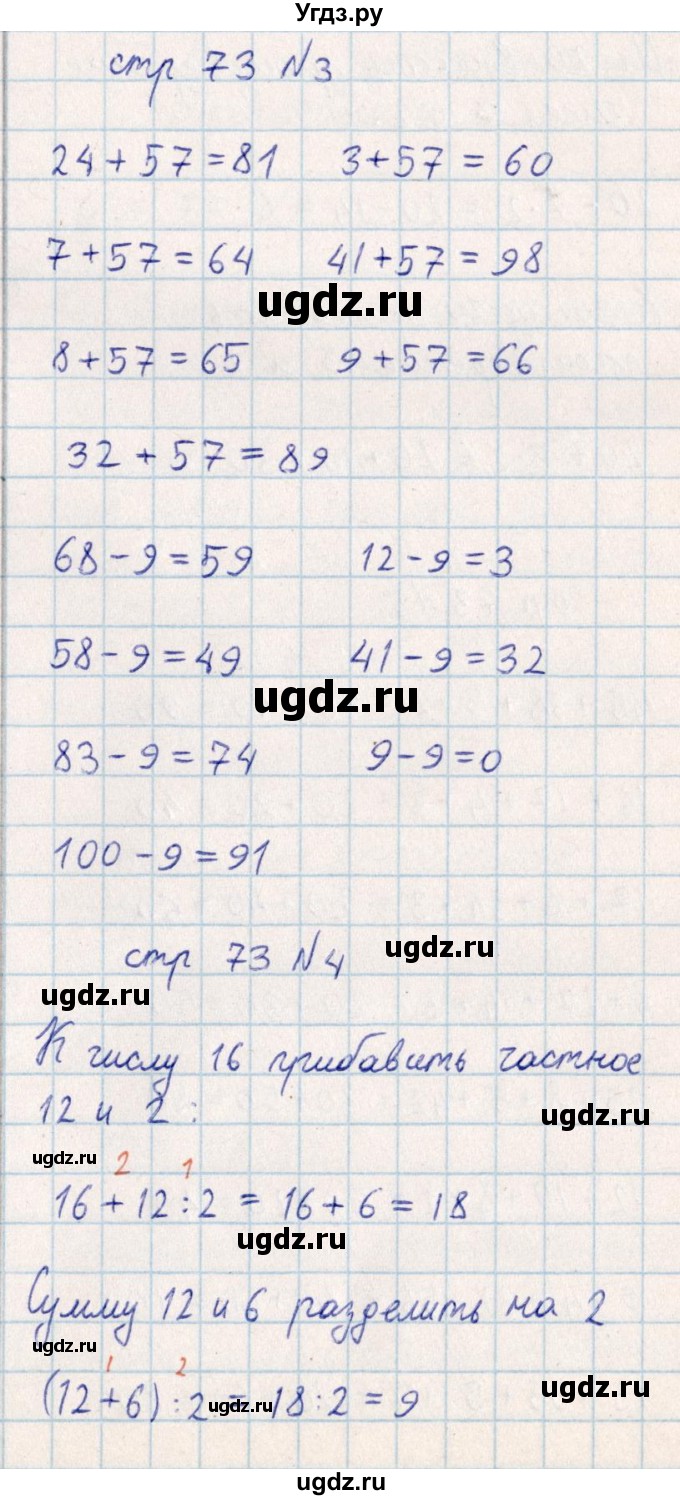 Угдз.ру
стр 73 №3
24 + 57 = 81 3 + 57 = 60
7 + 57 = 64 41 + 57 = 98
ugdz.ru
8 + 57 = 65 9 + 57 = 66
32 + 57 = 89
68 - 9 = 59 12 - 9 = 3
58 - 9 = 49 41 - 9 = 32
ugdz.ru
83 - 9 = 74 9 - 9 = 0
100 - 9 = 91
стр 73 №4 ugdz.ru
ugdz.ru
К числу 16 прибавить частное
12 и 2 : ugdz.ru
ugdz.ru 2 1
16 + 12 : 2 = 16 + 6 = 18
ugdz.ru
Сумму 12 и 6 разделить на 2
ugdz.ru 1 2 ugdz.ru
(12 + 6) : 2 = 18 : 2 = 9
ugdz.ru
ugdz.ru